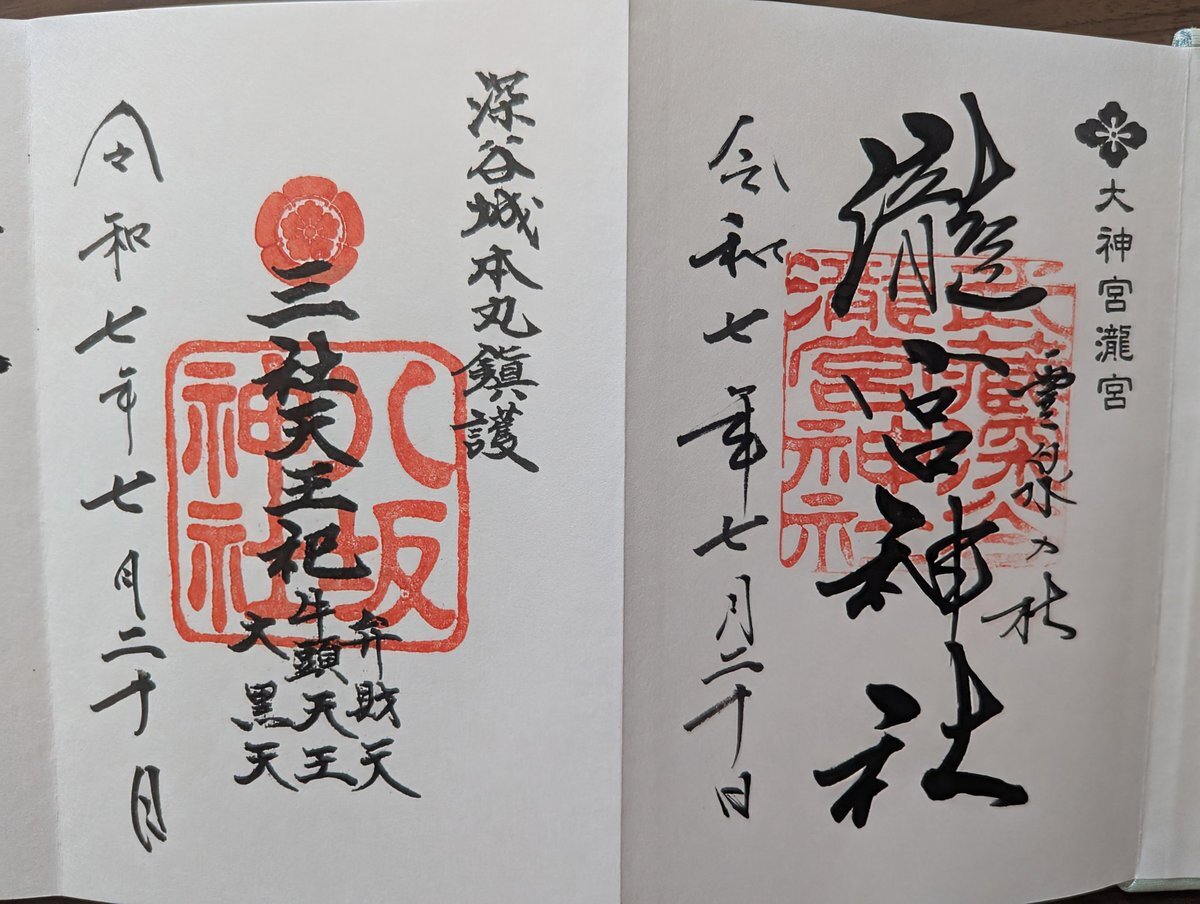 大神宮瀧宮
霊泉乃社
瀧宮神社
武蔵深谷
瀧宮神社
令和七年七月二十日
深谷城本丸鎮護
三社天王祀
弁財天
牛頭天王
大黒天
八坂
神社
令和七年七月二十日